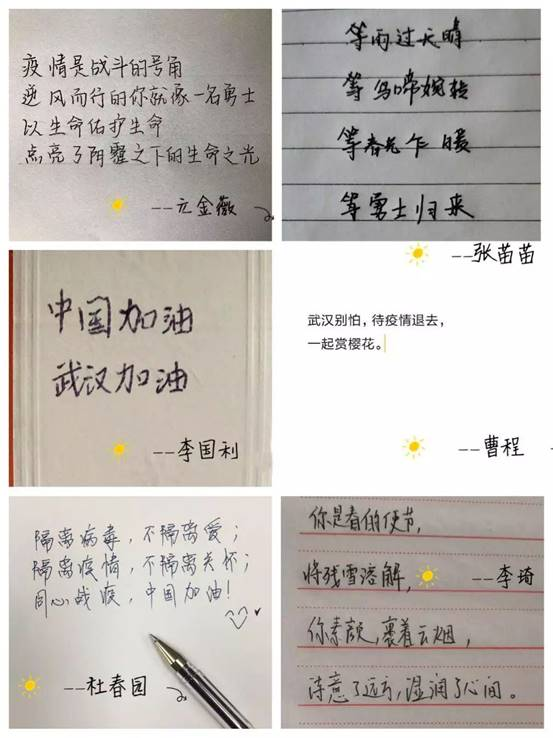 疫情是战斗的号角
逆风而行的你就像一名勇士
以生命佑护生命
点亮了阴霾之下的生命之光
--亢金薇
等雨过天晴
等鸟啼婉转
等春光乍暖
等勇士归来
--张苗苗
中国加油
武汉加油
--李国利
武汉别怕，待疫情退去，
一起赏樱花。
--曹程
隔离病毒，不隔离爱；
隔离疫情，不隔离关怀；
同心战疫，中国加油！
--杜春园
你是春的使节，
将残雪溶解，
--李琦
你素颜，裹着云烟，
诗意了远方，湿润了心间。